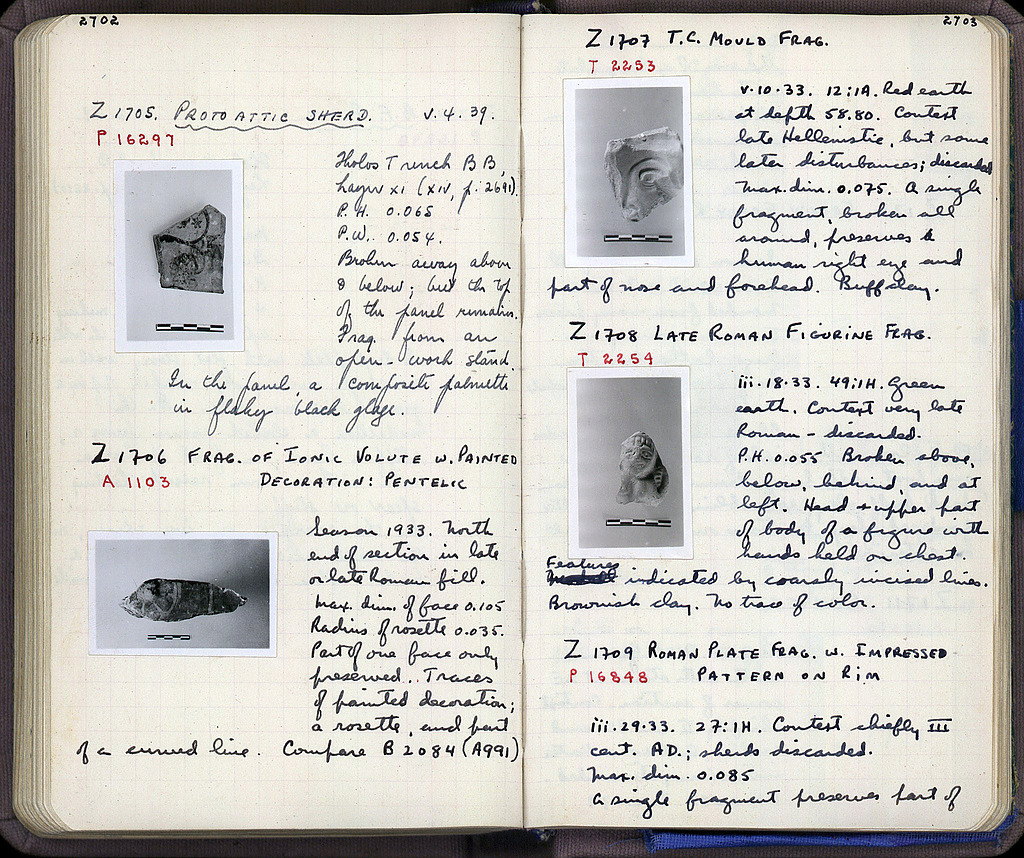 2702
Z 1705. PROTOATTIC SHERD. v. 4. 39.
P 16297
Tholos Trench BB,
Layer XI (XIV, p. 2691).
P.H. 0.065
P.W. 0.054.
Broken away above
& below; but the top
of the panel remains.
Frag. from an
open-work stand.
In the panel, a composite palmette
in flaky black glaze.
Z 1706 FRAG. OF IONIC VOLUTE W. PAINTED
A 1103 DECORATION: PENTELIC
Season 1933. North
end of section in late
or late Roman fill.
Max. dim. of face 0.105
Radius of rosette 0.035.
Part of one face only
preserved. Traces
of painted decoration;
a rosette, and part
of a curved line. Compare B 2084 (A991)
2703
Z 1707 T.C. MOULD FRAG.
T 2253
v.10.33. 12:1A. Red earth
at depth 58.80. Context
late Hellenistic, but some
later disturbances; discarded
Max. dim. 0.075. A single
fragment, broken all
around, preserves
human right eye and
part of nose and forehead. Buff clay.
Z 1708 LATE ROMAN FIGURINE FRAG.
T 2254
iii.18.33. 49:1H. Green
earth. Context very late
Roman - discarded.
P.H. 0.055 Broken above,
below, behind, and at
left. Head + upper part
of body of a figure with
hands held on chest.
Features
indicated by coarsly incised lines.
Brownish clay. No trace of color.
Z 1709 ROMAN PLATE FRAG. W. IMPRESSED
P 16848 PATTERN ON RIM
iii.29.33. 27:1H. Context chiefly III
cent. AD.; sherds discarded.
Max. dim. 0.085
A single fragment preserves part of